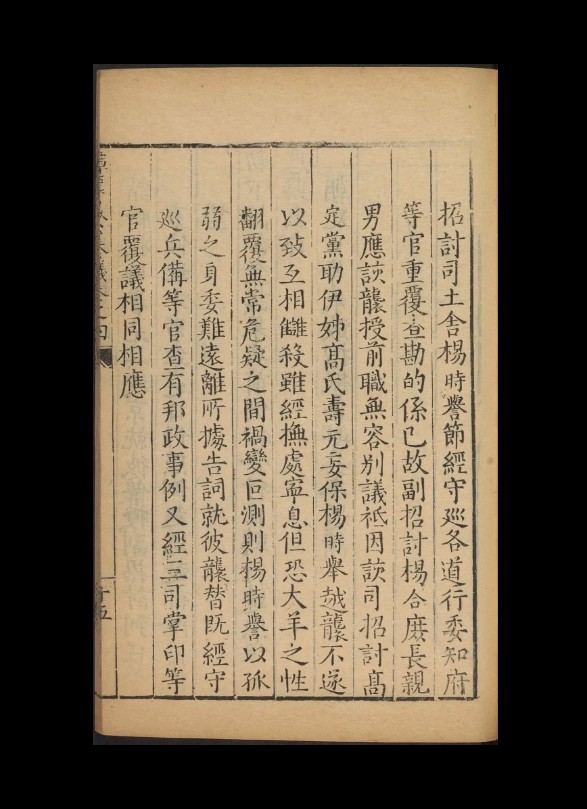 招討司土舍楊時譽節經守巡各道行委知府
等官重覆查勘的係已故副招討楊合庶長親
男應該襲授前職無容別議祗因該司招討高
定黨助伊姊高氏壽元妄保楊時舉越襲不遂
以致互相讎殺雖經撫處寧息但恐犬羊之性
翻覆無常危疑之間禍變叵測則楊時譽以孤
弱之身委難遠離所據告詞就彼襲替既經守
巡兵備等官查有邦政事例又經三司掌印等
官覆議相同相應